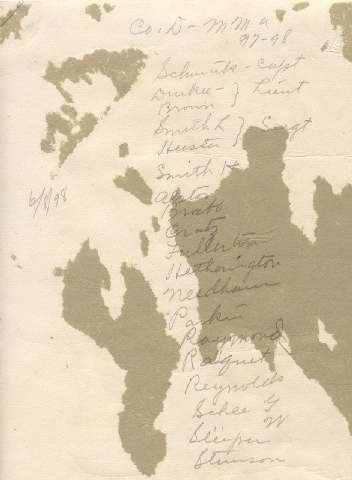 Co. D - M M a
97-98
Schmitt - Capt
Durkee - } Lieut
Brown
Smith L } Sergt
Hester
Smith H
6/8/98
Alston
Bratt
Craty
Fullerton
Hetherington
Needham
Parkin
Raymond
Raquet
Reynolds
Schee G
Sleeper W
Stimson